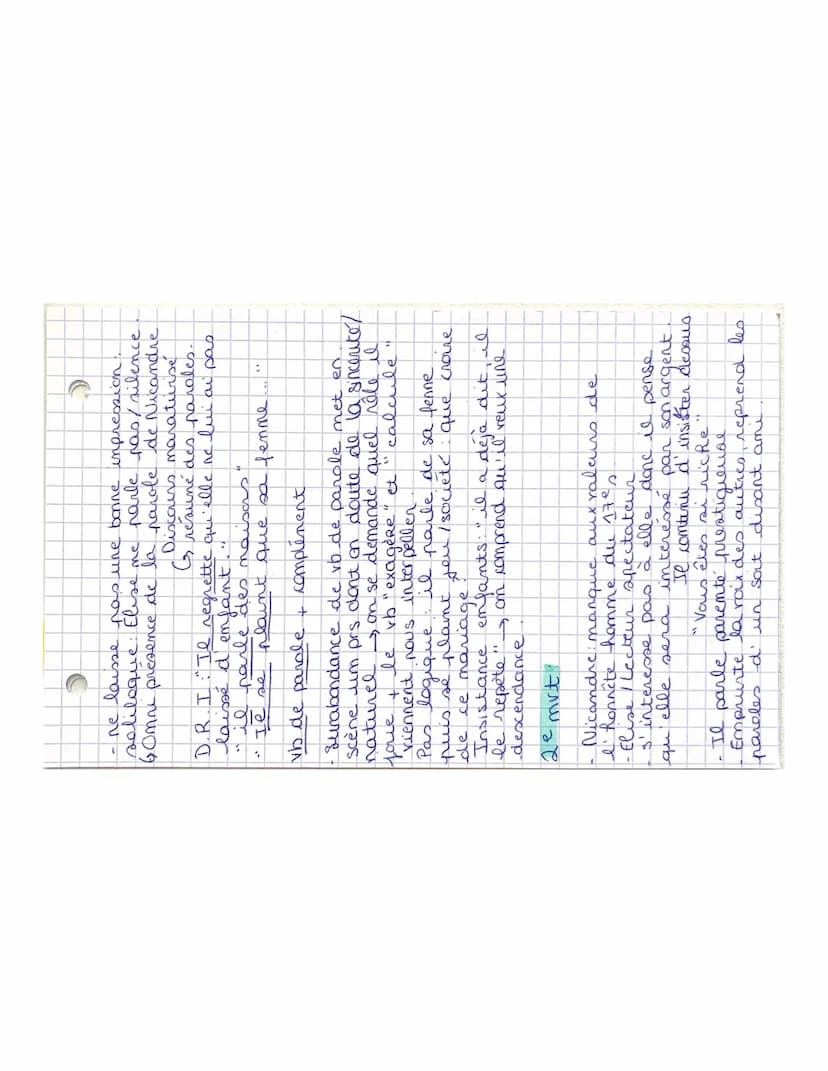 - ne laisse pas une bonne impression.
soliloque : Elise ne parle pas / silence.
↳ Omni présence de la parole de Nicandre
Discours narrativisé
↳ résumé des paroles.
D.R.I : "Il regrette qu'elle ne lui ai pas
laissé d'enfant."
"il parle des maisons"
"Il se plaint que sa femme ..."
vb de parole + complément
- Surabondance de vb de parole met en
scène um prs dont on doute de la sincérité /
naturel → on se demande quel rôle il
joue + le vb "exagère" et "calcule"
viennent nous interpeller.
Pas logique : il parle de sa femme
puis se plaint jeu / société : que croire
de ce mariage ?
Insistance enfants : "il a déjà dit, il
le repète" → on comprend qu'il veux une
descendance.
2e mvt :
- Nicandre : manque aux valeurs de
l'honnête homme du 17e s.
- Elise / Lecteur spectateur
- s'interesse pas à elle donc il pense
qu'elle sera intéressé par son argent.
Il continu d'insister dessus
"Vous êtes si riche"
- Il parle parenté prestigieuse
- Emprunte la voix des autres, reprend les
paroles d'un soit disant ami.